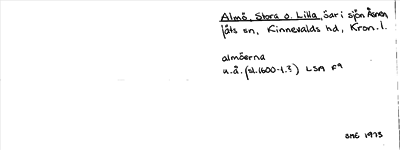 Almö, Stora o. Lilla, öar i sjön Åsnen,
Jäts sn, Kinnevalds hd, Kron. l.
almöerna
u.å. (sl. 1600-t.?) LSA F9
OME 1973